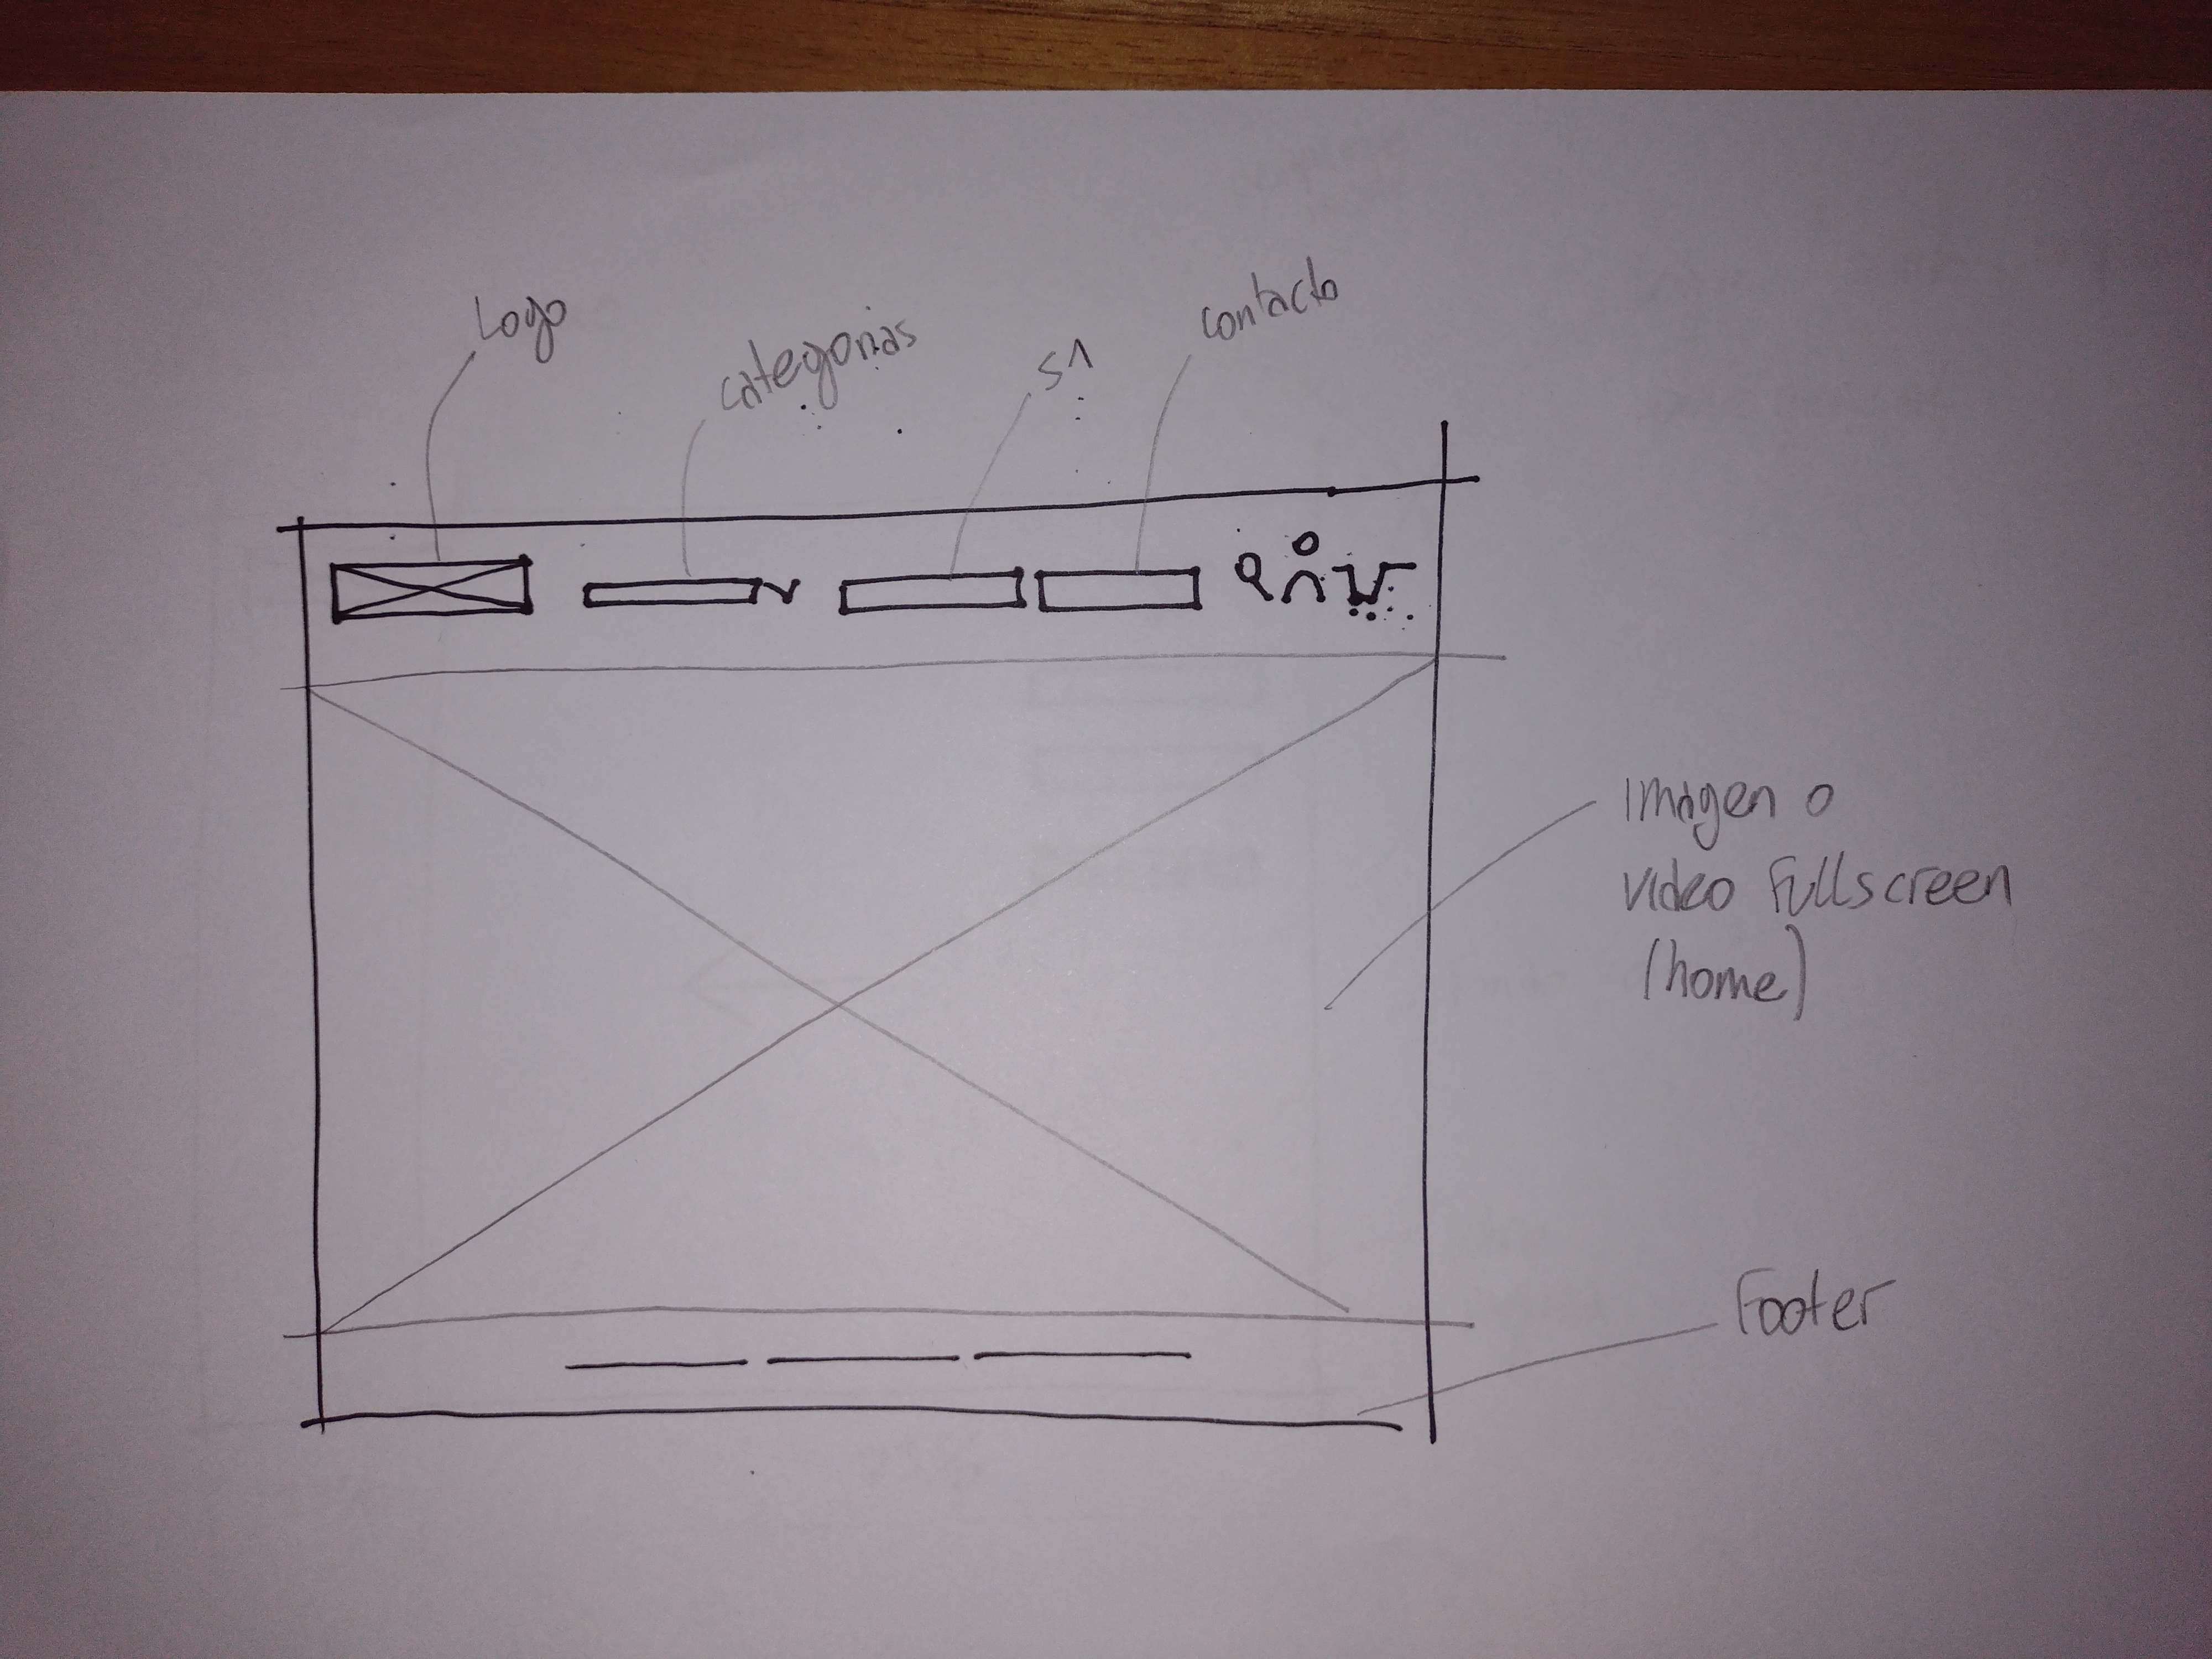 Logo
categorias
S1
contacto
imagen o
video fullscreen
(home)
Footer